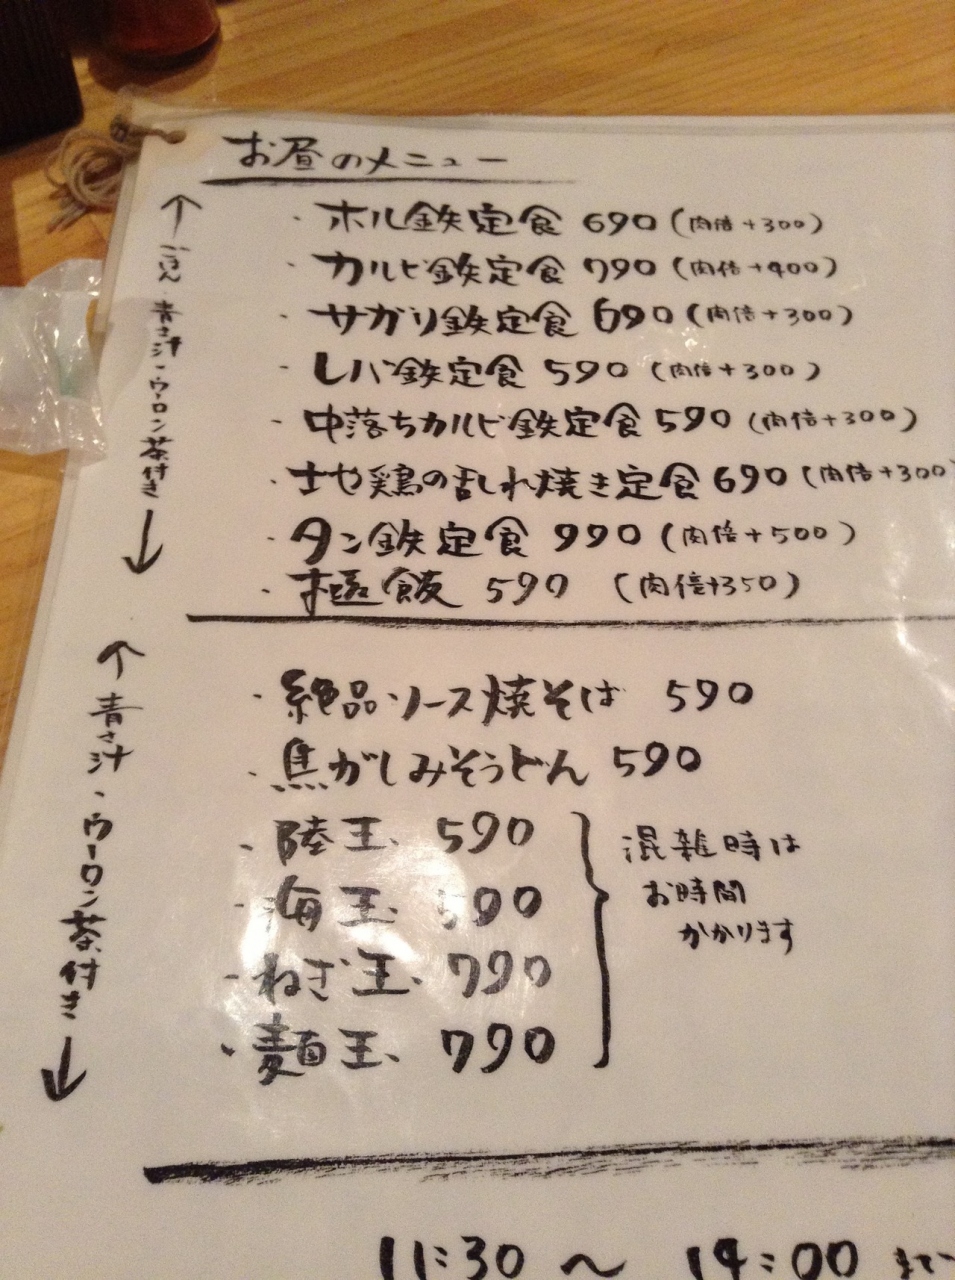 お昼のメニュー
・ホル鉄定食 690(肉倍+300)
・カルビ鉄定食 790(肉倍+400)
・サガリ鉄定食 690(肉倍+300)
・レバ鉄定食 590(肉倍+300)
・中落ちカルビ鉄定食 590(肉倍+300)
・士や鶏の乱れ焼き定食 690(肉倍+300
・タン鉄定食 990(肉倍+500)
・極飯 590 (肉倍+350)
↑ごはん・青さ汁・ウーロン茶付き↓
・絶品ソース焼そば 590
・焦がしみそうどん 590
・陸玉 590
・海玉 590
・ねぎ玉 790
・麺玉 790
混雑時は
お時間
かかります
↑青さ汁・ウーロン茶付き↓
11:30 〜 14:00 まで